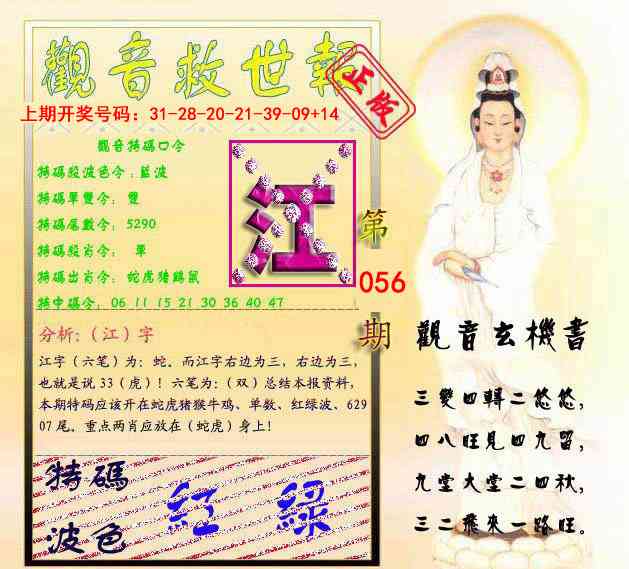 觀音救世報
正版
上期开奖号码：31-28-20-21-39-09+14
觀音特碼口令
特碼殺波色令：藍波
特碼單雙令： 雙
特碼尾數令： 5290
特碼殺肖令： 單
特碼出肖令： 蛇虎猪鷄鼠
特中碼令： 06 11 15 21 30 36 40 47
江
第
056
期
分析：（江）字
江字（六笔）为：蛇。而江字右边为三，右边为三，
也就是说 33（虎）！六笔为：（双）总结本报资料，
本期特码应该开在蛇虎猪猴牛鸡、单数、红绿波、629
07 尾。重点两肖应放在（蛇虎）身上！
特碼
波色
紅 綠
觀音玄機書
三變四轉二悠悠，
四八旺見四九留，
九堂大堂二四秋，
三二飛來一路旺。